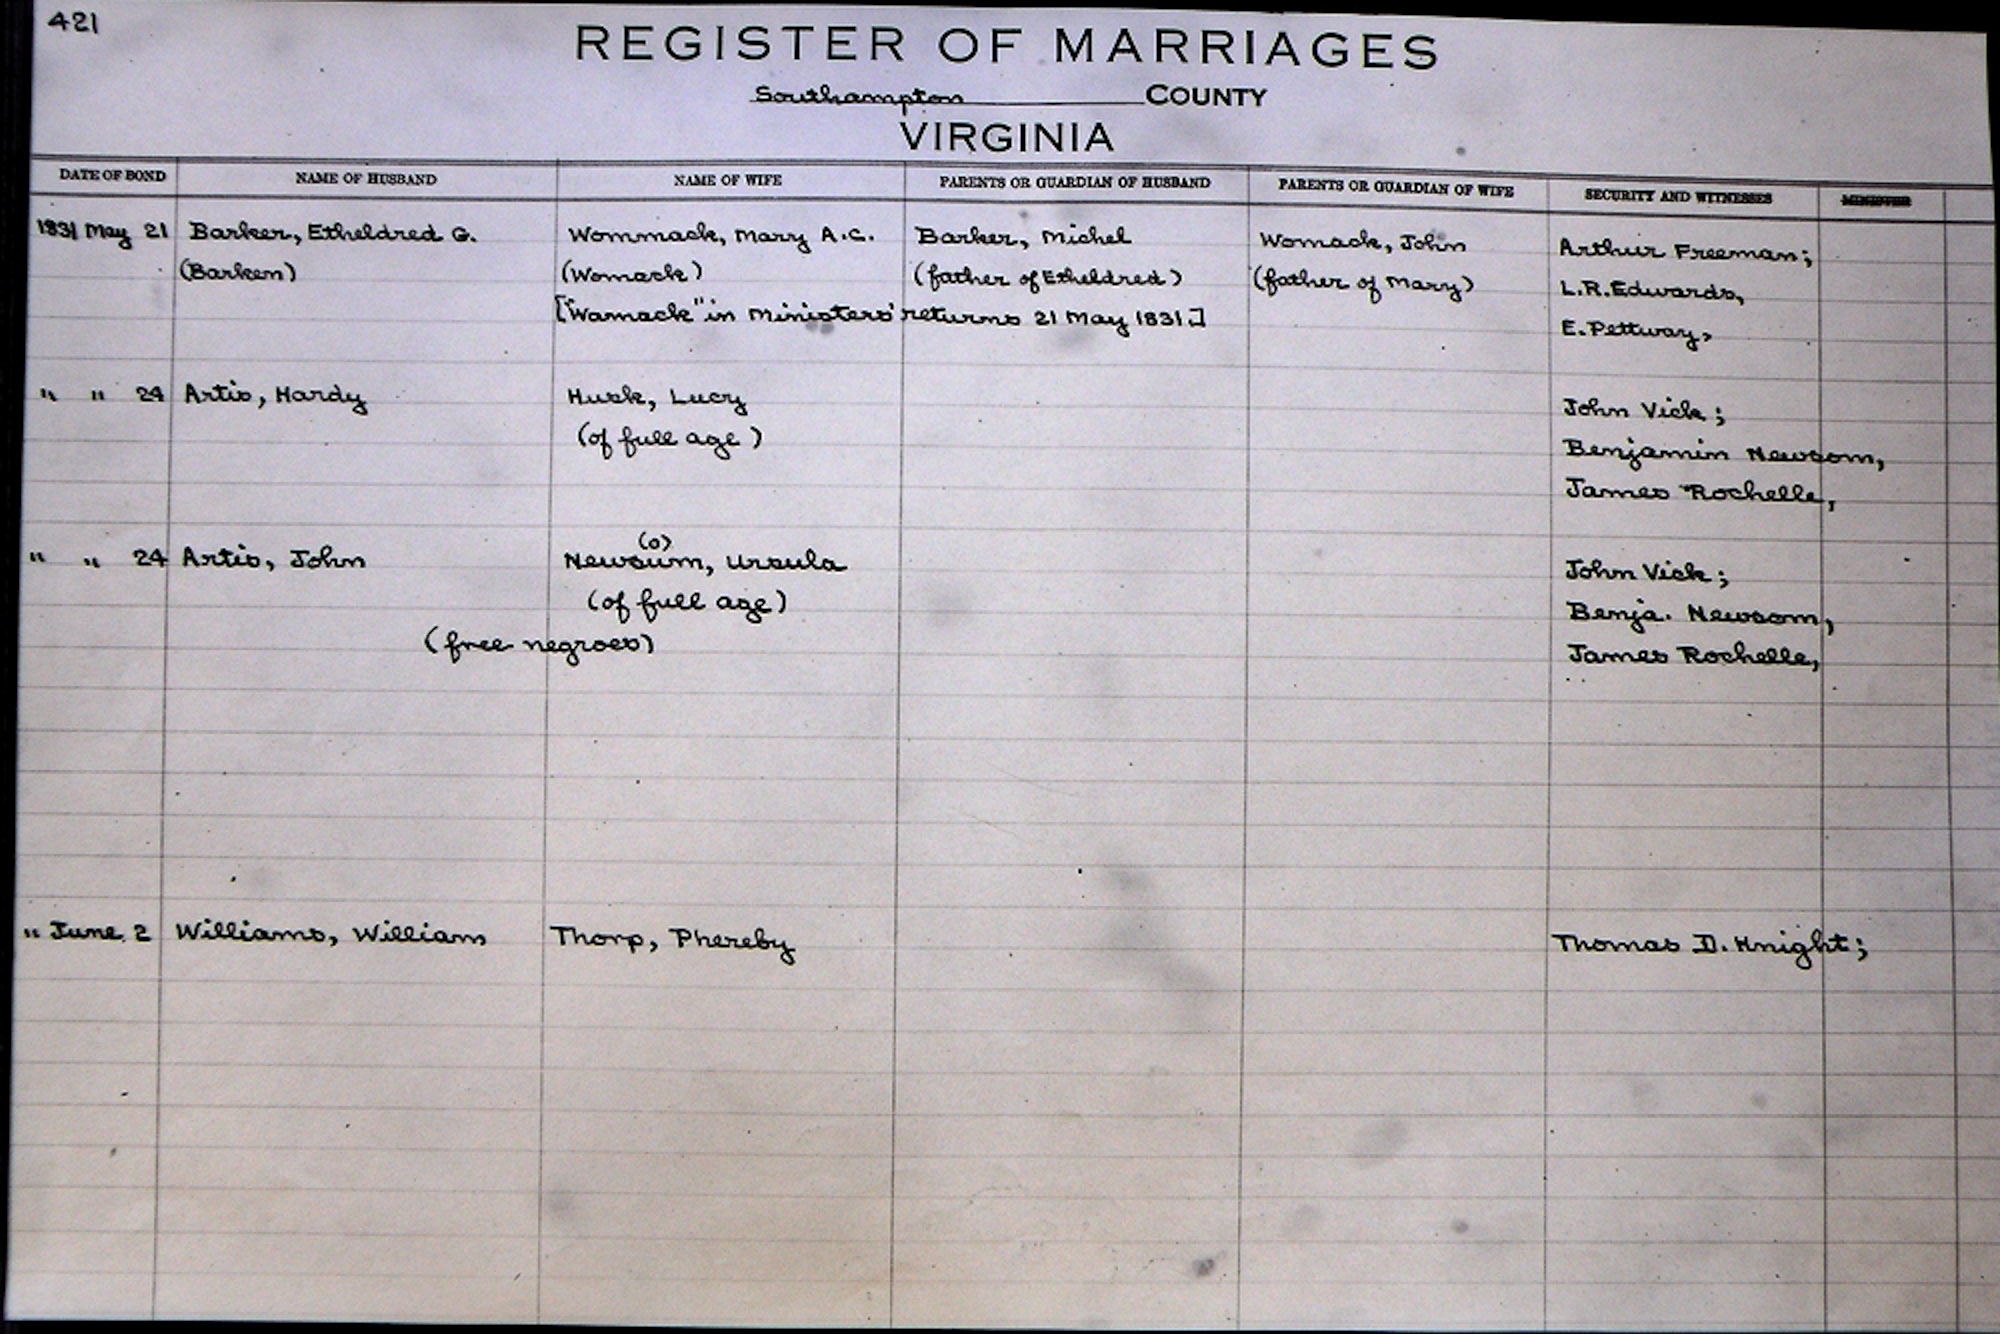 421
REGISTER OF MARRIAGES
Southampton COUNTY
VIRGINIA
DATE OF BOND NAME OF HUSBAND NAME OF WIFE PARENTS OR GUARDIAN OF HUSBAND PARENTS OR GUARDIAN OF WIFE SECURITY AND WITNESSES MINISTER
1831 May 21 Barker, Etheldred G. Wommack, Mary A.C. Barker, Michel Womack, John Arthur Freeman;
(Barken) (Womack) (father of Etheldred) (father of Mary) L.R. Edwards,
["Wamack" in Ministers' returns 21 May 1831.] E. Pettway,
" " 24 Artis, Hardy Husk, Lucy John Vick;
(of full age) Benjamin Newsom,
James Rochelle,
(o)
" " 24 Artis, John Newsum, Ursula John Vick;
(of full age) Benja. Newsom,
(free negroes) James Rochelle,
" June 2 Williams, William Thorp, Phereby Thomas D. Knight;